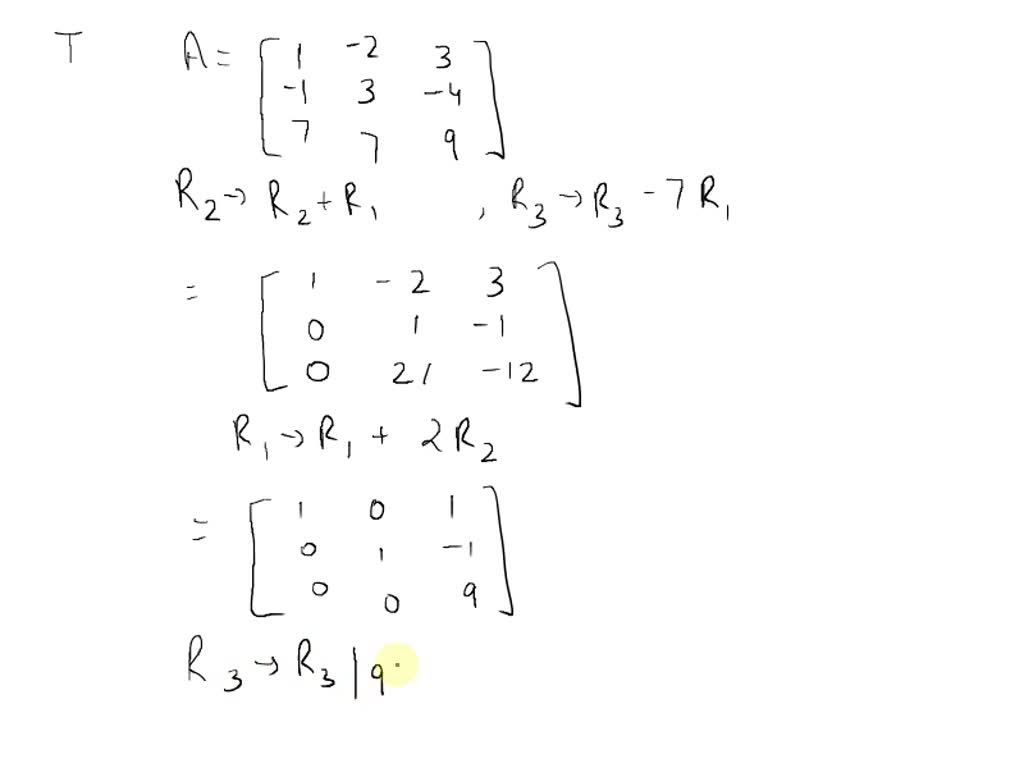 T A = [ 1 -2 3
-1 3 -4
7 7 9 ]
R2 → R2 + R1 , R3 → R3 - 7 R1
= [ 1 -2 3
0 1 -1
0 21 -12 ]
R1 → R1 + 2R2
= [ 1 0 1
0 1 -1
0 0 9 ]
R3 → R3 | 9